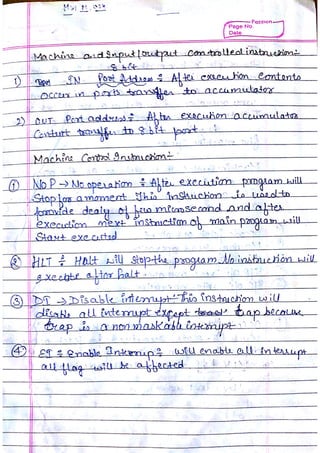 Passion
Page No.
Date
Machine and Input/output controlled instruction:-
8 bit
1) IN Port Address : After execution contents
occur in ports transfer to accumulator
2) OUT Port address : After execution accumulator
Content transfer to 8 bit port.
Machine Control Instruction:-
① NOP → No operation : After execution program will
Stop for a moment This instruction is used to
provide dealy of few microsecond and after
execution next instruction of main program will
Start executed
② HLT : Halt will stop the program. No instruction will
execute after halt.
③ DI → Disable interrupt - This instruction will
disable all interrupt except trap because
trap is a non maskable interrupt.
④ EI : Enable Interrup : will enable all interrupt
all flag will be affected